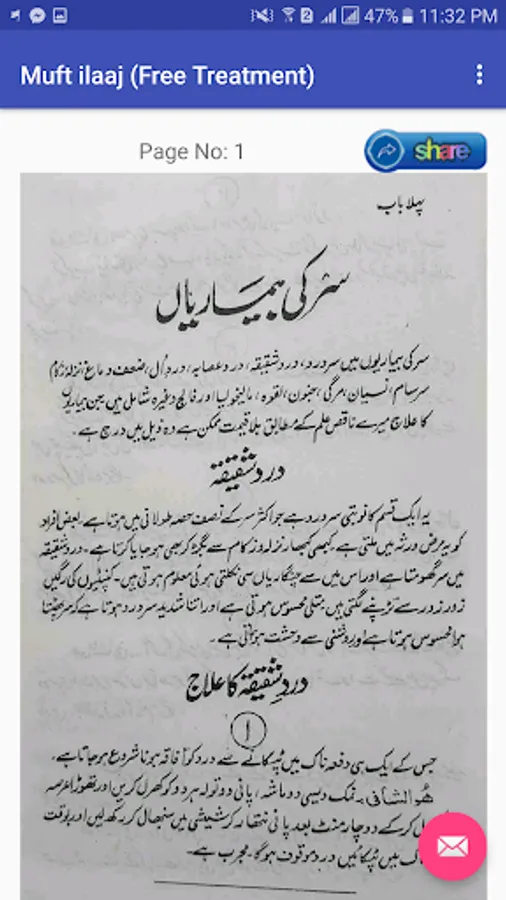 47% 11:32 PM
Muft ilaaj (Free Treatment)
Page No: 1
share
پہلا باب
سر کی بیماریاں
سر کی بیماریوں میں سر درد، درد شقیقہ، درد عصابہ، درد اُل، ضعف دماغ، نزلہ زکام
سرسام، نسیان، مرگی، جنون، لقوہ، مالیخولیا اور فالج وغیرہ شامل ہیں جن بیماریوں
کا علاج میرے ناقص علم کے مطابق بلا قیمت ممکن ہے وہ ذیل میں درج ہے۔
درد شقیقہ
یہ ایک قسم کا نوبتی سر درد ہے جو اکثر سر کے نصف حصہ طولانی میں ہوتا ہے۔ بعض افراد
کو یہ مرض ورثہ میں ملتی ہے۔ کبھی کبھار نزلہ و زکام سے بگڑ کر بھی ہو جایا کرتا ہے۔ درد شقیقہ
میں سر گھومتا ہے اور اس میں سے چنگاریاں سی نکلتی ہوئی معلوم ہوتی ہیں۔ کنپٹیوں کی رگیں
زور زور سے تڑپنے لگتی ہیں متلی محسوس ہوتی ہے اور اتنا شدید سر درد ہوتا ہے کہ سر پھٹتا
ہوا محسوس ہوتا ہے اور روشنی سے دحشت ہوتی ہے۔
درد شقیقہ کا علاج
۱
جس کے ایک ہی دفعہ ناک میں ٹپکانے سے درد کو آفاقہ ہونا شروع ہو جاتا ہے۔
ھُوَ الشافی۔ نمک دیسی دو ماشہ، پانی دو تولہ ہر دو کو کھرل کریں اور تھوڑا عرصہ
کر کے دو چار منٹ بعد پانی نتھار کر شیشی میں سنبھال کر رکھ لیں اور بوقت
ناک میں ٹپکائیں درد موقوف ہو گا۔ مجرب ہے۔